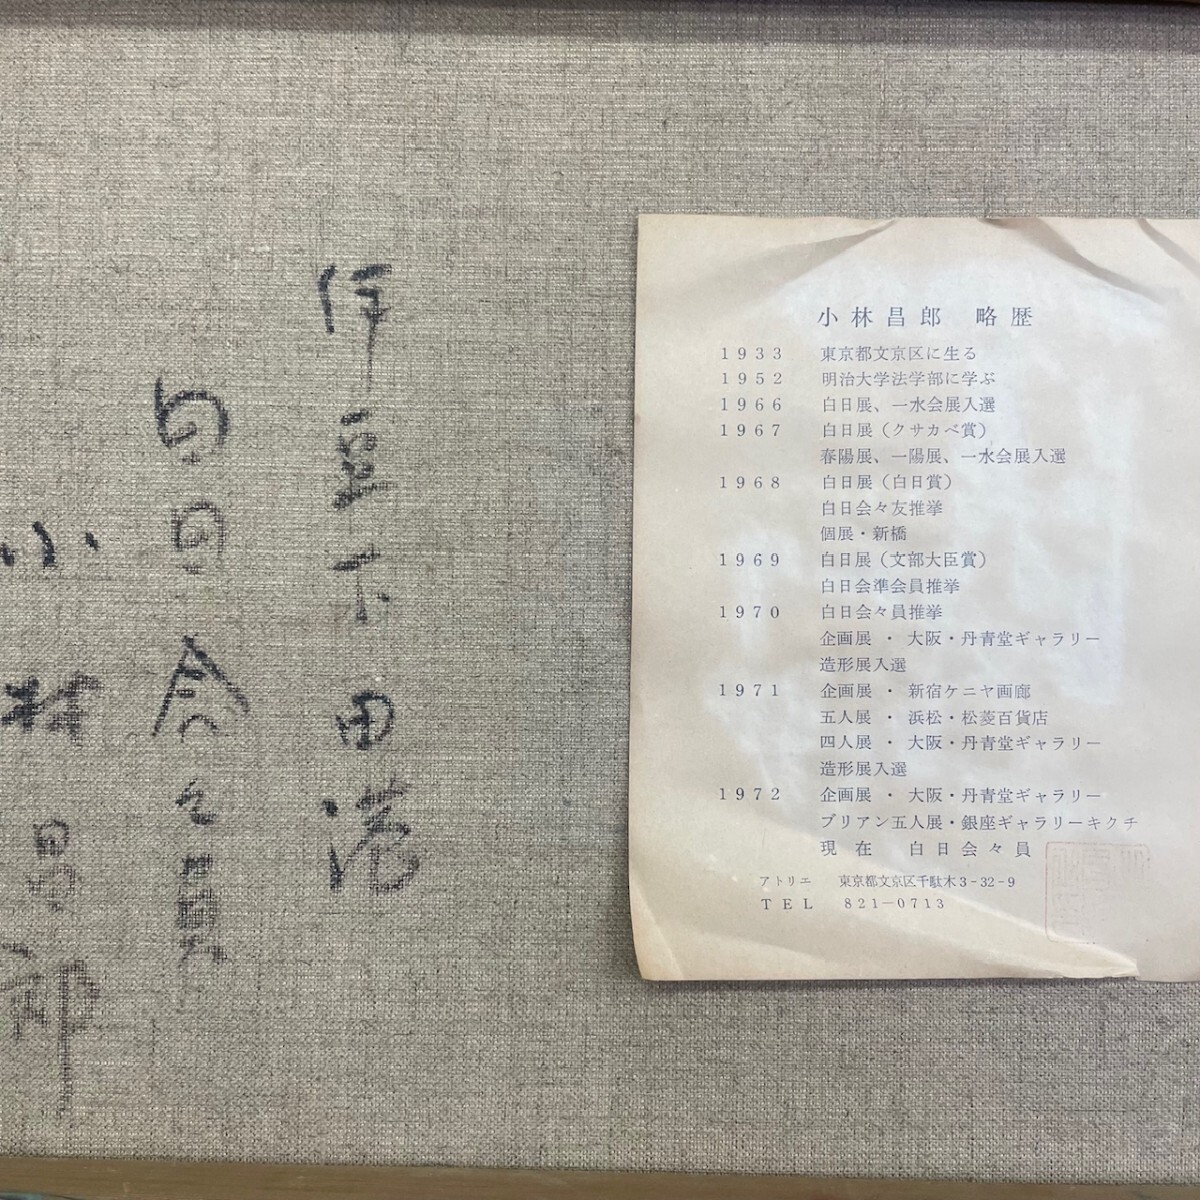 伊豆下田港
白日会々員
小林昌郎
小林昌郎 略歴
1933 東京都文京区に生る
1952 明治大学法学部に学ぶ
1966 白日展、一水会展入選
1967 白日展(クサカベ賞)
春陽展、一陽展、一水会展入選
1968 白日展(白日賞)
白日会々友推挙
個展・新橋
1969 白日展(文部大臣賞)
白日会準会員推挙
1970 白日会々員推挙
企画展・大阪・丹青堂ギャラリー
造形展入選
1971 企画展・新宿ケニヤ画廊
五人展・浜松・松菱百貨店
四人展・大阪・丹青堂ギャラリー
造形展入選
1972 企画展・大阪・丹青堂ギャラリー
ブリアン五人展・銀座ギャラリーキクチ
現在 白日会々員
アトリエ 東京都文京区千駄木3-32-9
TEL 821-0713